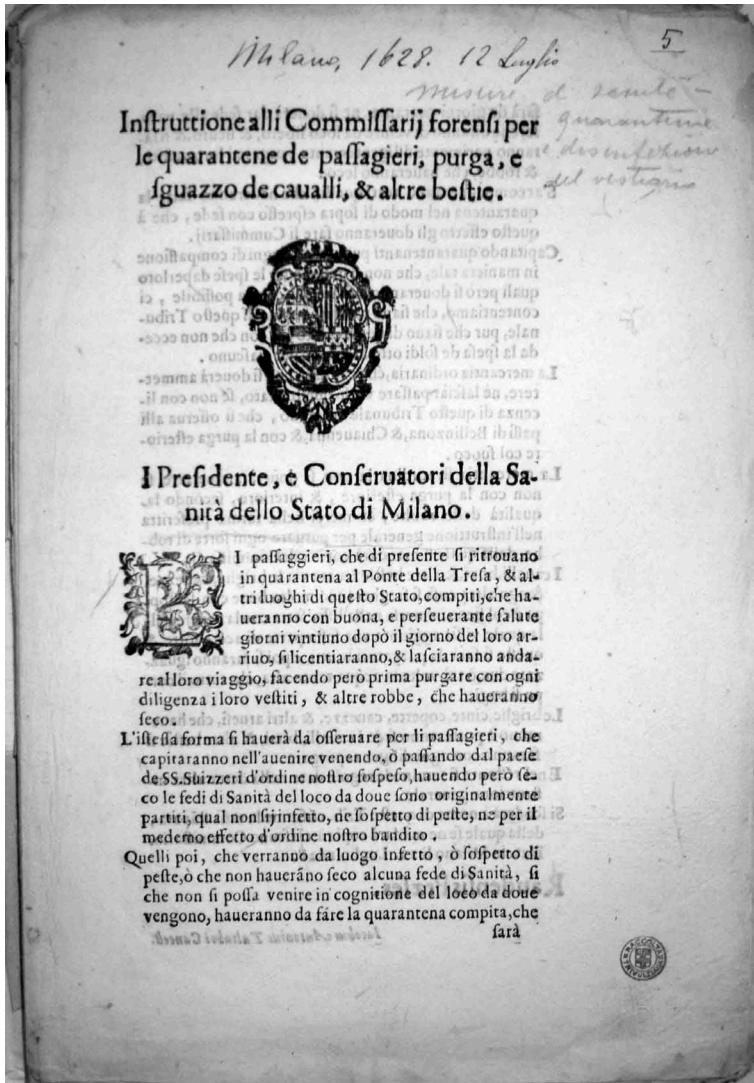 5
Milano, 1628. 12 Luglio
misure di sanità -
quarantene
e disinfezioni
del vestiario
Inſtruttione alli Commiſſarij forenſi per
le quarantene de paſſagieri, purga, e
ſguazzo de caualli, & altre beſtie.
I Preſidente, e Conſeruatori della Sa-
nità dello Stato di Milano.
LI paſſaggieri, che di preſente ſi ritrouano
in quarantena al Ponte della Treſa, & al-
tri luoghi di queſto Stato, compiti, che ha-
ueranno con buona, e perſeuerante ſalute
giorni vintiuno dopò il giorno del loro ar-
riuo, ſi licentiaranno, & laſciaranno anda-
re al loro viaggio, facendo però prima purgare con ogni
diligenza i loro veſtiti, & altre robbe, che haueranno
ſeco.
L'iſteſſa forma ſi hauerà da oſſeruare per li paſſagieri, che
capitaranno nell'auenire venendo, ò paſſando dal paeſe
de SS. Suizzeri d'ordine noſtro ſoſpeſo, hauendo però ſe-
co le fedi di Sanità del loco da doue ſono originalmente
partiti, qual non ſij infetto, ne ſoſpetto di peſte, ne per il
medemo effetto d'ordine noſtro bandito.
Quelli poi, che verranno da luogo infetto, ò ſoſpetto di
peſte, ò che non haueráno ſeco alcuna fede di Sanità, ſi
che non ſi poſſa venire in cognitione del loco da doue
vengono, haueranno da fáre la quarantena compita, che
ſarà